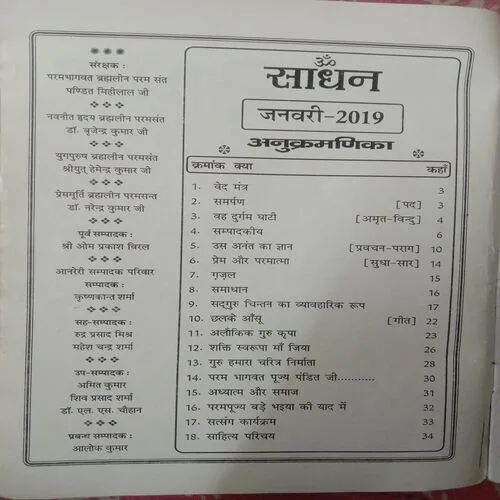 संरक्षक :
परमभागवत ब्रह्मलीन परम संत
पण्डित मिहीलाल जी
नवनीत हृदय ब्रह्मलीन परमसंत
डॉ. बृजेन्द्र कुमार जी
युगपुरुष ब्रह्मलीन परमसंत
श्रीयुत् हेमेन्द्र कुमार जी
प्रेममूर्ति ब्रह्मलीन परमसन्त
डॉ. नरेन्द्र कुमार जी
पूर्व सम्पादक :
श्री ओम प्रकाश विरल
आनरेरी सम्पादक परिवार
सम्पादक :
कृष्णकान्त शर्मा
सह-सम्पादक :
रुद्र प्रसाद मिश्र
महेश चन्द्र शर्मा
उप-सम्पादक :
अमित कुमार
शिव प्रसाद शर्मा
डॉ. एल. एस. चौहान
प्रबन्ध सम्पादक :
आलोक कुमार
ॐ
साधन
जनवरी-2019
अनुक्रमणिका
क्रमांक क्या कहाँ
1. वेद मंत्र 3
2. समर्पण [पद] 3
3. वह दुर्गम घाटी [अमृत-विन्दु] 4
4. सम्पादकीय 6
5. उस अनंत का ज्ञान [प्रवचन-पराग] 10
6. प्रेम और परमात्मा [सुधा-सार] 14
7. गज़ल 15
8. समाधान 16
9. सद्गुरु चिन्तन का व्यावहारिक रूप 17
10. छलके आँसू [गीत] 22
11. अलौकिक गुरु कृपा 23
12. शक्ति स्वरूपा माँ जिया 26
13. गुरु हमारा चरित्र निर्माता 28
14. परम भागवत पूज्य पंडित जी.......... 30
15. अध्यात्म और समाज 31
16. परमपूज्य बड़े भइया की याद में 32
17. सत्संग कार्यक्रम 33
18. साहित्य परिचय 34